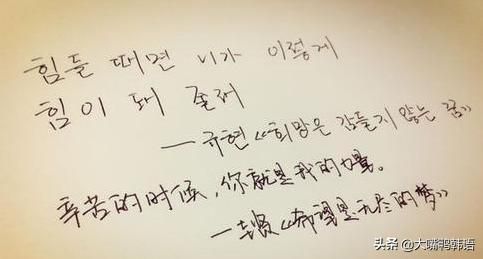 힘들 때면 니가 이렇게
힘이 돼 줄래
—규현《희망은 잠들지 않는 꿈》
辛苦的时候,你就是我的力量。
—圭贤《希望是无尽的梦》
头条 @大嘴鸭韩语